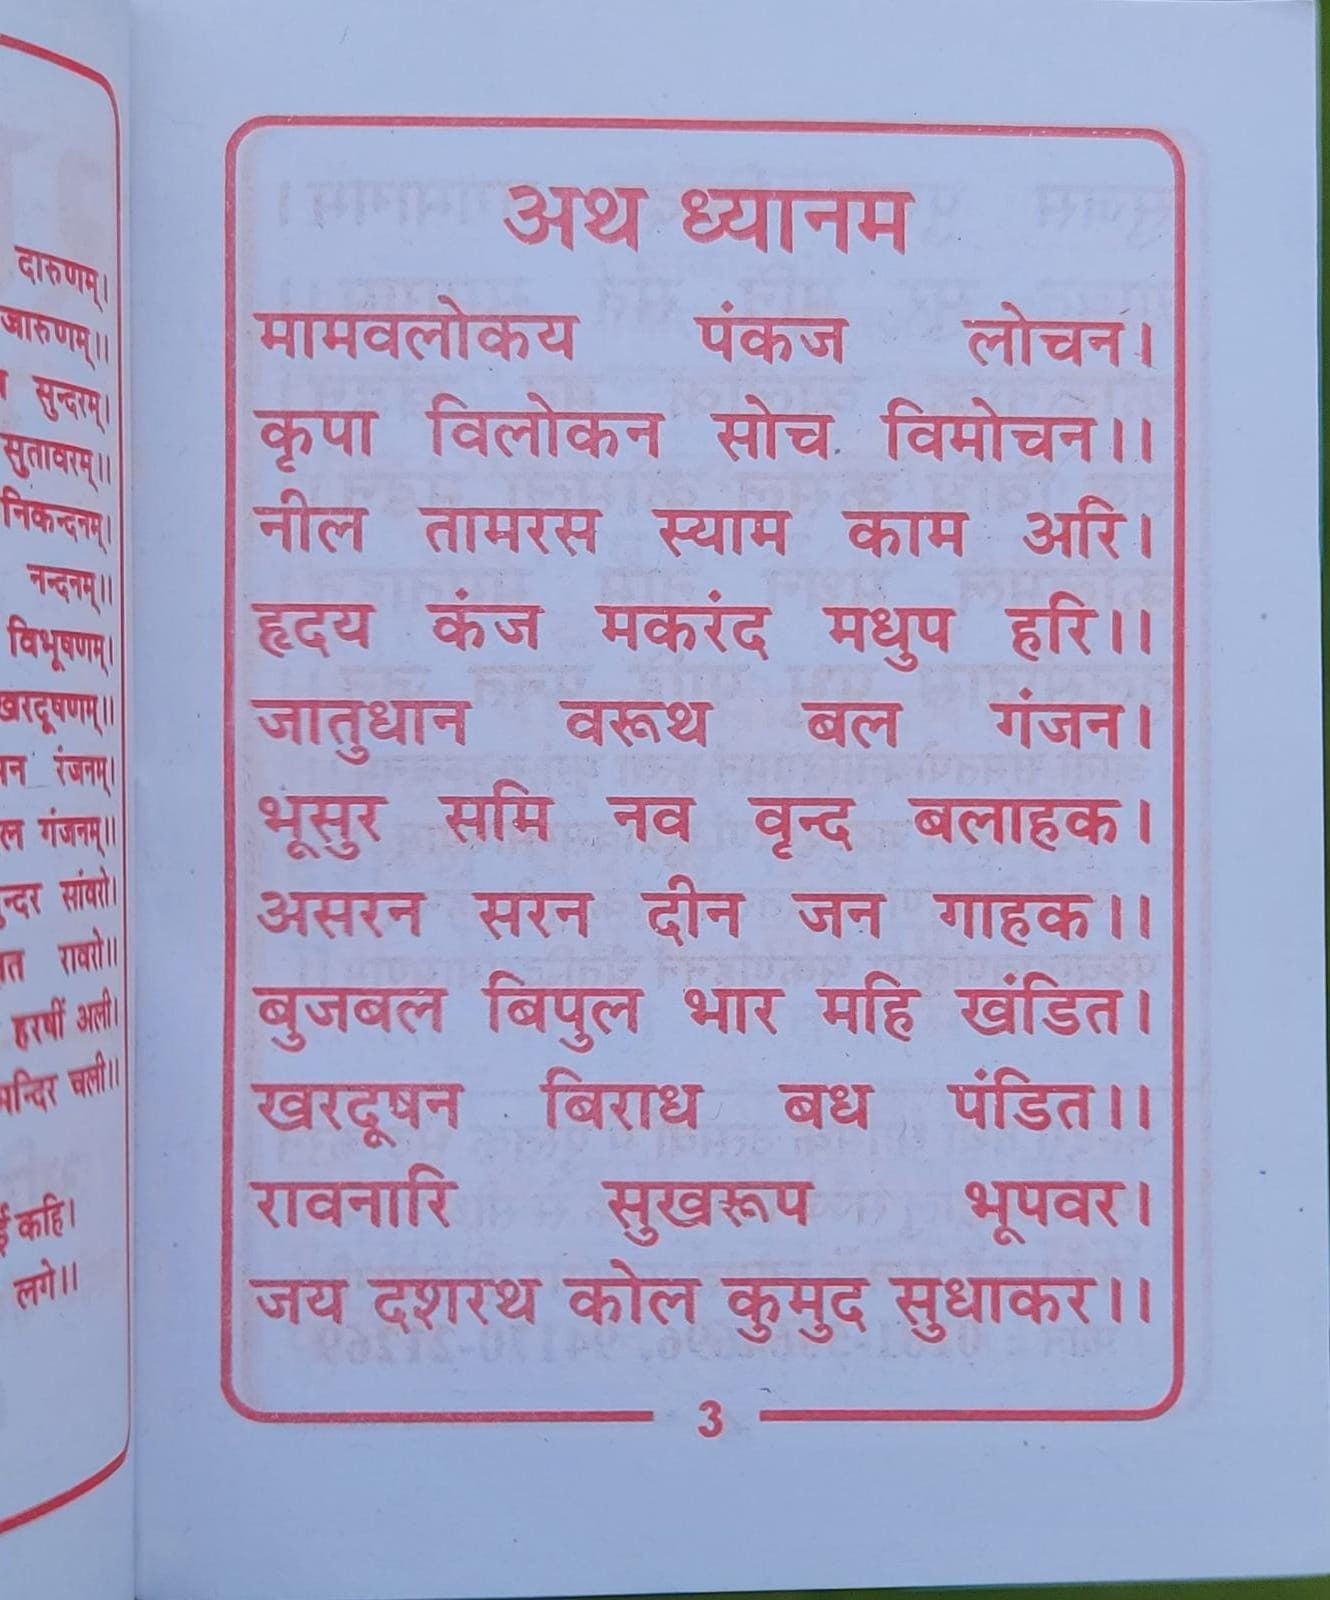 दारुणम्।
जारुणम्।।
सुन्दरम्।
सुतावरम्।।
निकन्दनम्।
नन्दनम्।।
विभूषणम्।
खरदूषणम्।।
रंजनम्।
गंजनम्।।
सांवरो।
रावरो।।
हरषीं अली।
चली।।
कहि।
लगे।।
अथ ध्यानम
मामवलोकय पंकज लोचन।
कृपा विलोकन सोच विमोचन।।
नील तामरस स्याम काम अरि।
हृदय कंज मकरंद मधुप हरि।।
जातुधान वरूथ बल गंजन।
भूसुर समि नव वृन्द बलाहक।
असरन सरन दीन जन गाहक।।
बुजबल बिपुल भार महि खंडित।
खरदूषन बिराध बध पंडित।।
रावनारि सुखरूप भूपवर।
जय दशरथ कोल कुमुद सुधाकर।।
3